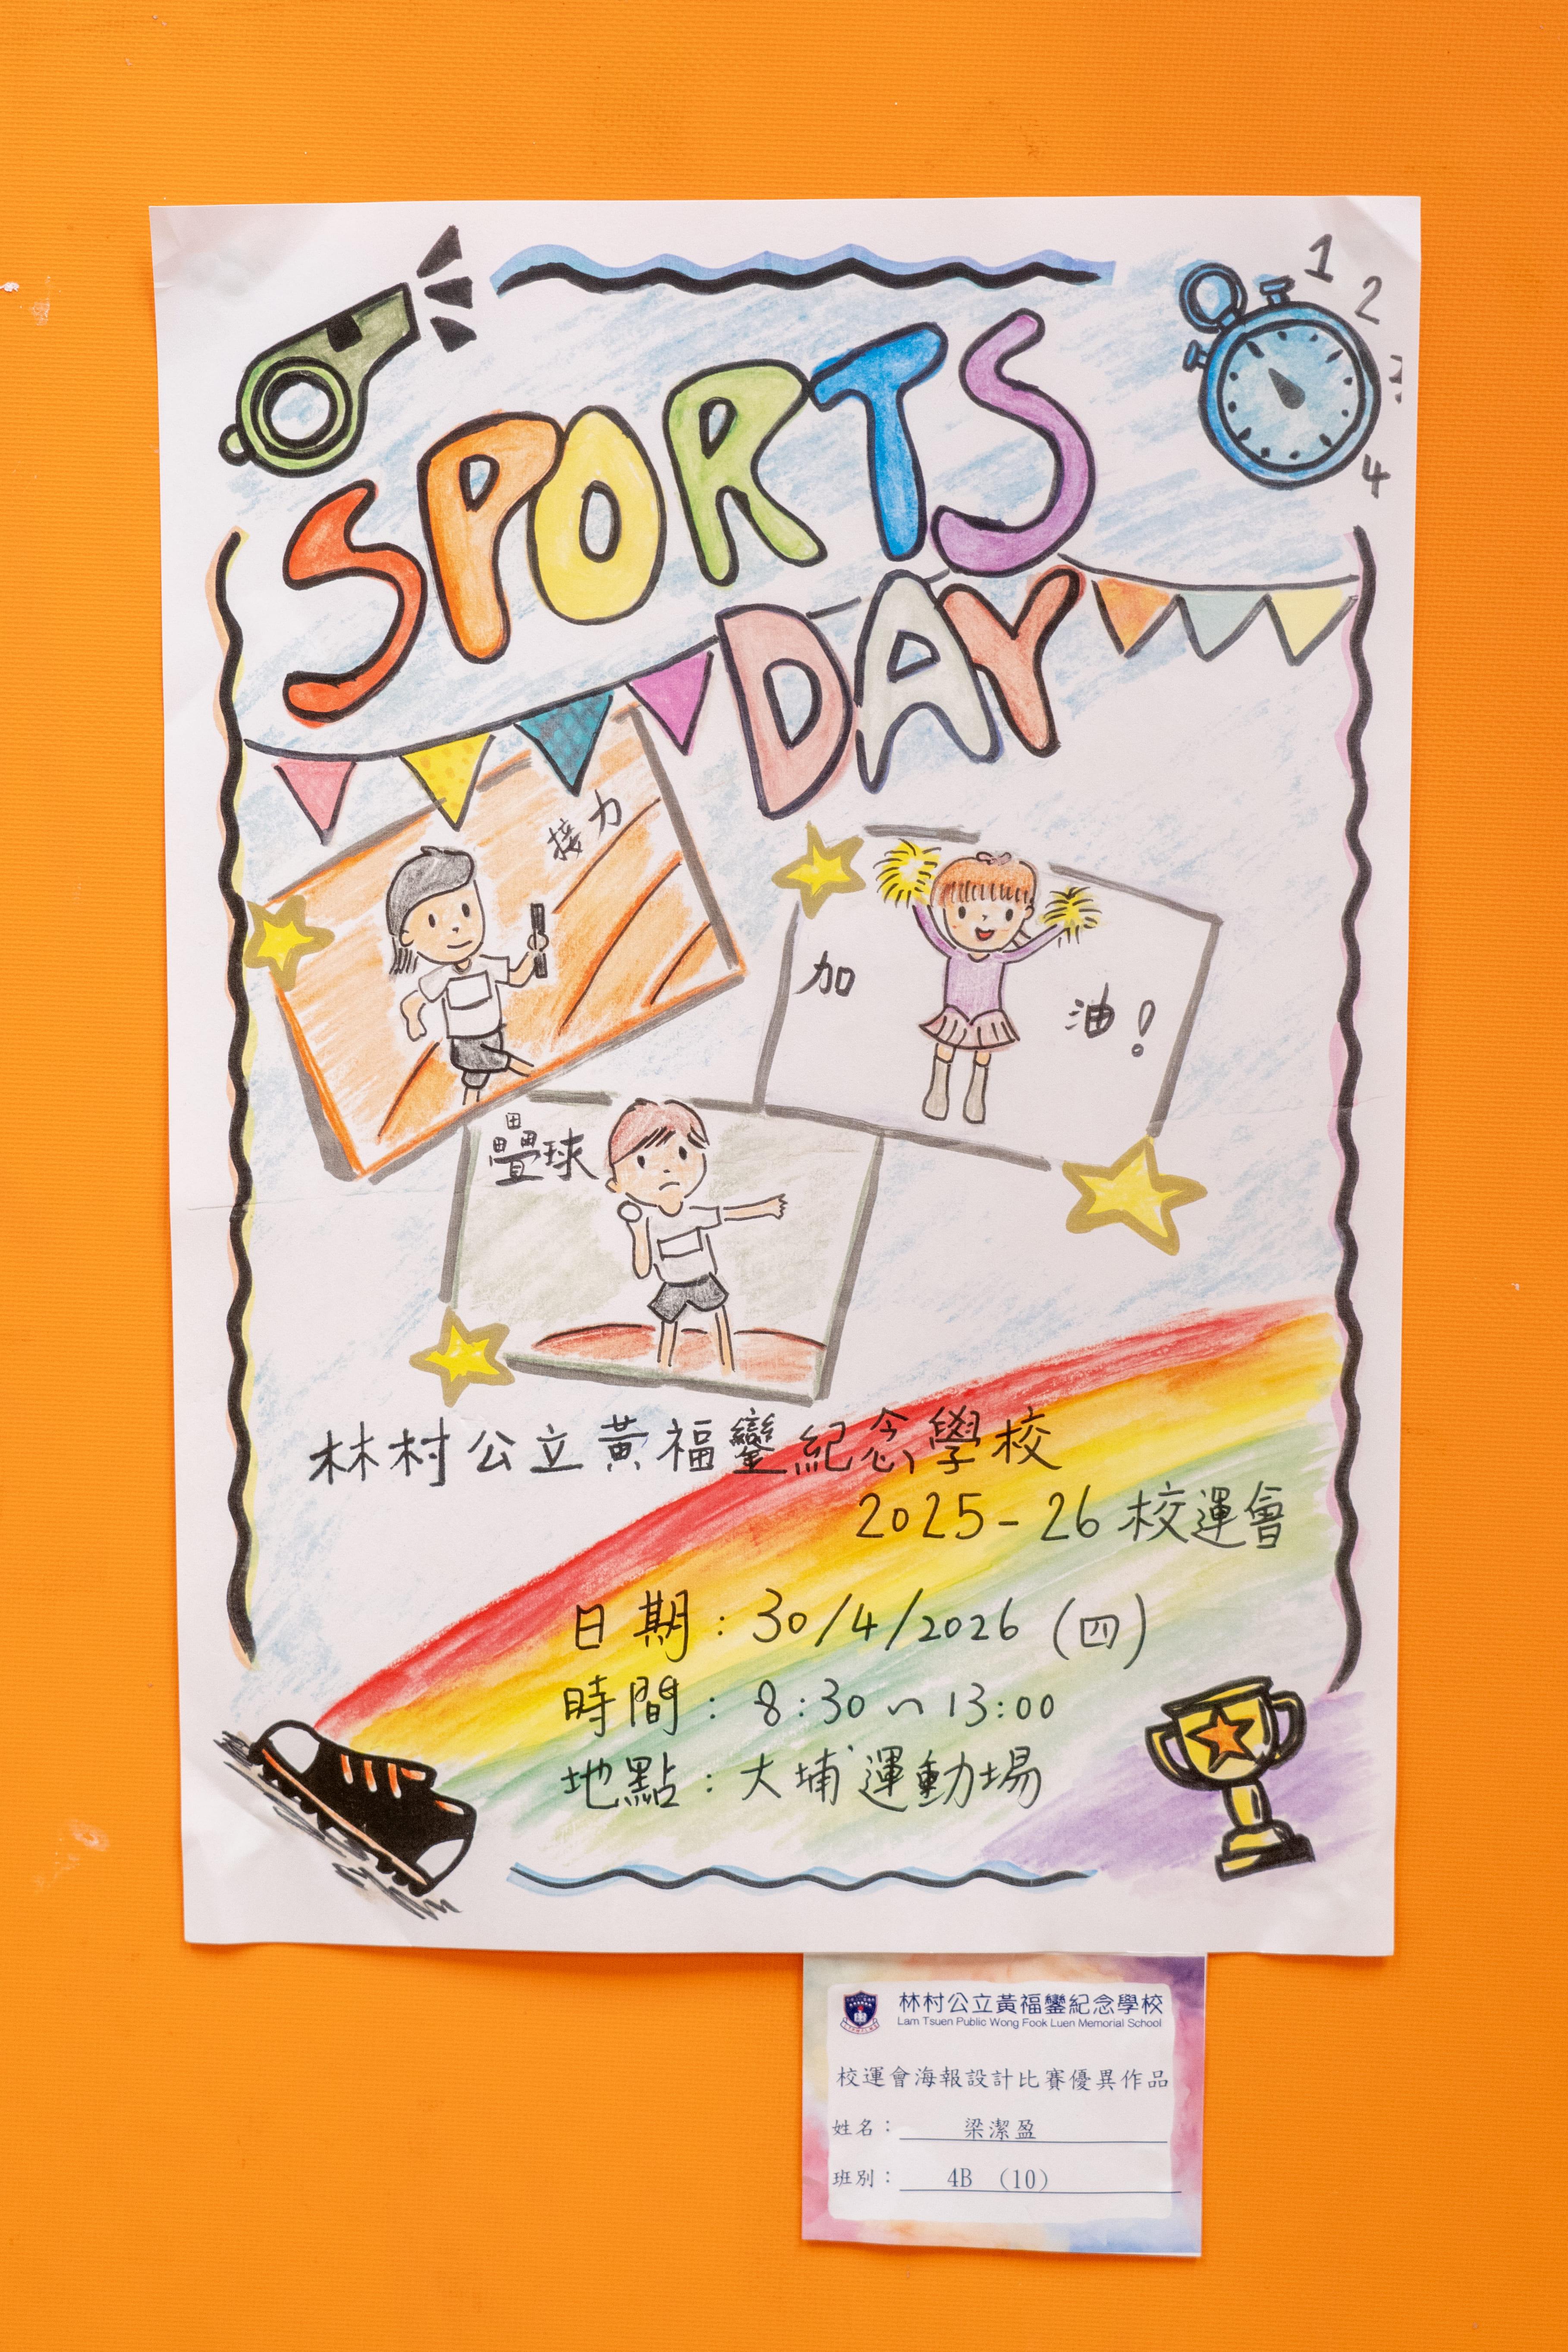 1
2
3
4
SPORTS
DAY
接力
加油！
壘球
林村公立黃福鑾紀念學校
2025-26校運會
日期：30/4/2026（四）
時間：8:30～13:00
地點：大埔運動場
林村公立黃福鑾紀念學校
Lam Tsuen Public Wong Fook Luen Memorial School
校運會海報設計比賽優異作品
姓名：梁潔盈
班別：4B （10）